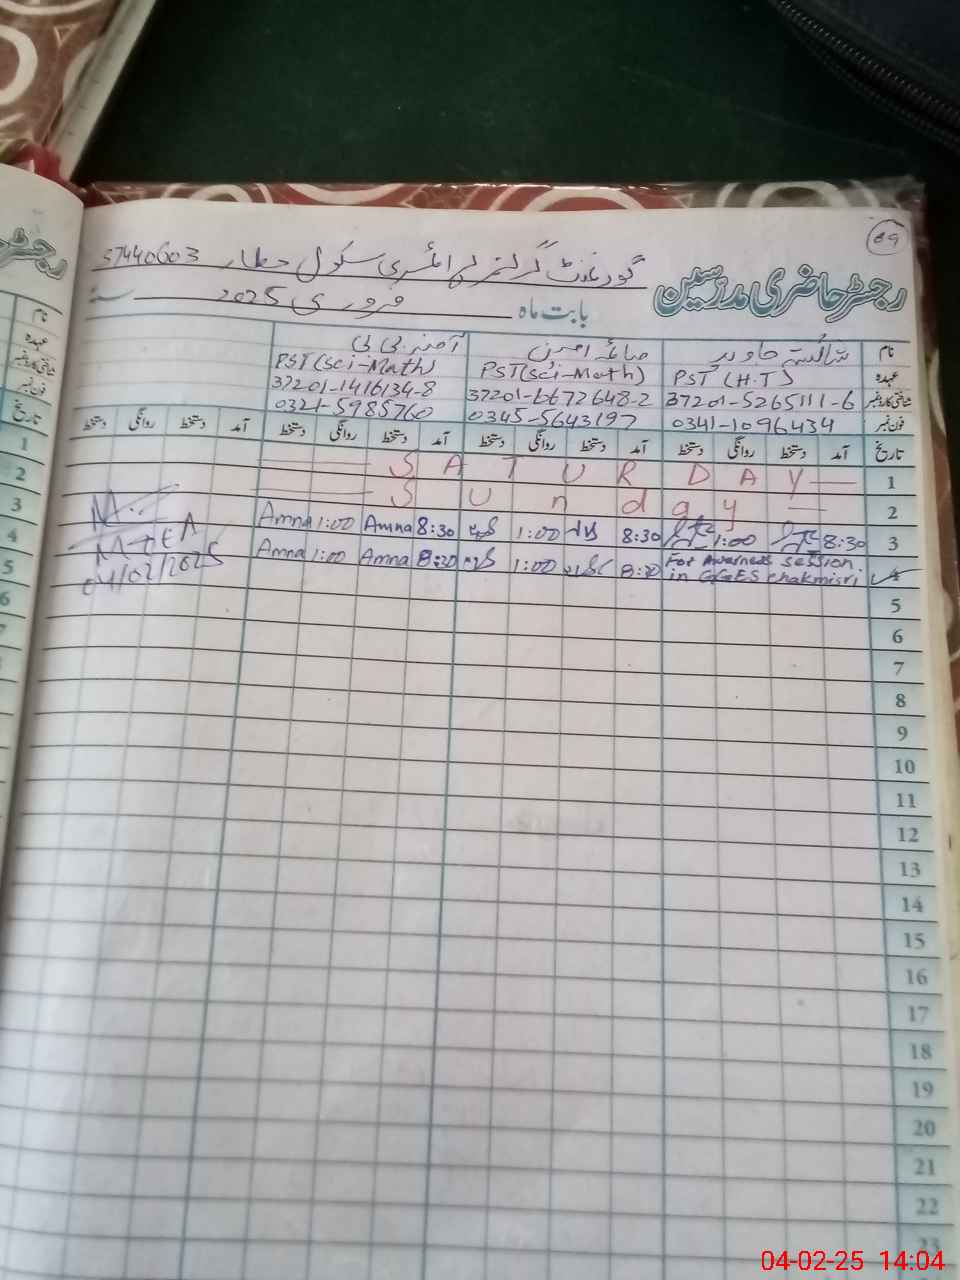 89
رجسٹر حاضری مدرسین
گورنمنٹ گرلز پرائمری سکول حطار 37440603
بابت ماہ فروری 2025 سنہ
نام شائستہ جاوید صائمہ امرین آمنہ بی بی
عہدہ PST (H.T) PST(Sci-Math) PST(Sci-Math)
شناختی کارڈ نمبر 37201-5265111-6 37201-6672648-2 37201-1416134-8
فون نمبر 0341-1096434 0345-5643197 0321-5985760
تاریخ آمد دستخط روانگی دستخط آمد دستخط روانگی دستخط آمد دستخط روانگی دستخط آمد دستخط روانگی دستخط
1 SATURDAY
2 Sunday
3 8:30 1:00 8:30 1:00 8:30 Amna 1:00 Amna
4 For Awareness session in GGES chakmisri 8:30 1:00 8:30 Amna 1:00 Amna
MEA
04/02/2025
5
6
7
8
9
10
11
12
13
14
15
16
17
18
19
20
21
22
23
رجسٹر
نام
عہدہ
شناختی کارڈ نمبر
فون نمبر
تاریخ
1
2
3
4
5
6
04-02-25 14:04